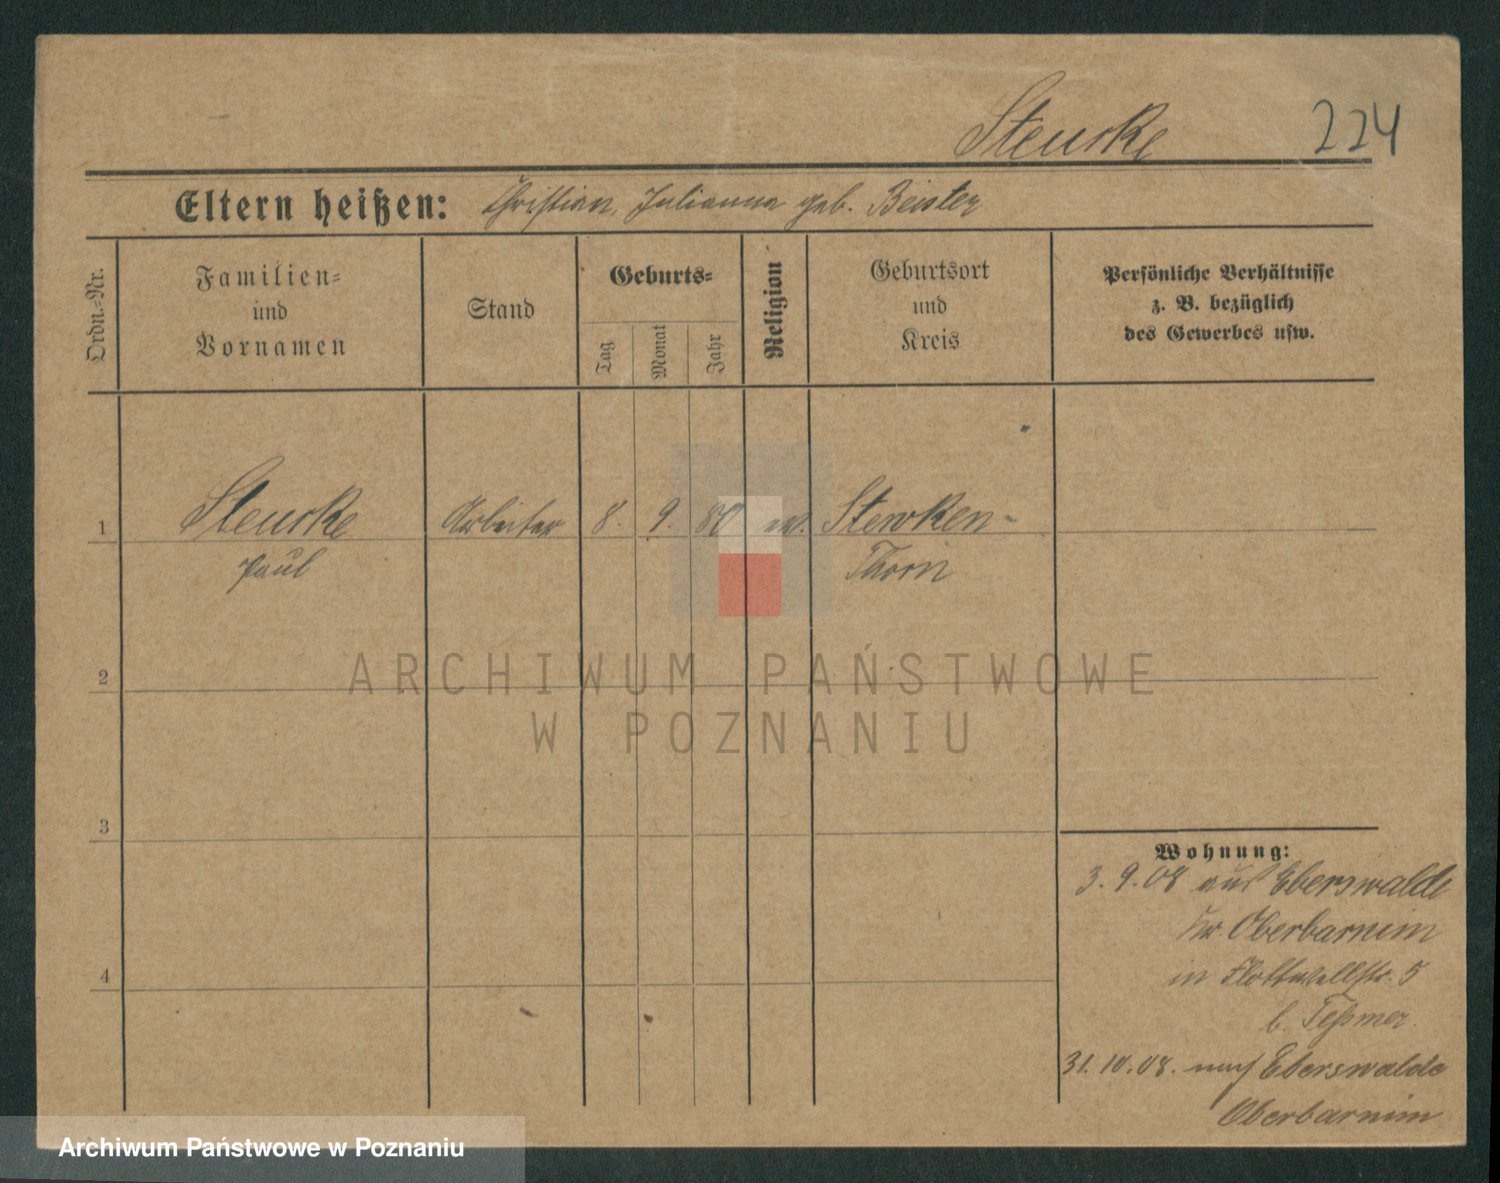 224
Eltern heißen: Christian, Julianna geb. Beister
Ordn.-Nr.
Familien-
und
Vornamen
Stand
Geburts-
Tag
Monat
Jahr
Religion
Geburtsort
und
Kreis
Persönliche Verhältnisse
z. B. bezüglich
des Gewerbes usw.
1 Arbeiter 8. 9. 80 ev. Stewken-
Paul Thorn
2
3
4
Wohnung:
3.9.08 aus Eberswalde
Kr. Oberbarnim
in Flottwellstr. 5
b. Teßmer.
31.10.08. nach Eberswalde
Oberbarnim
ARCHIWUM PAŃSTWOWE
W POZNANIU
Archiwum Państwowe w Poznaniu